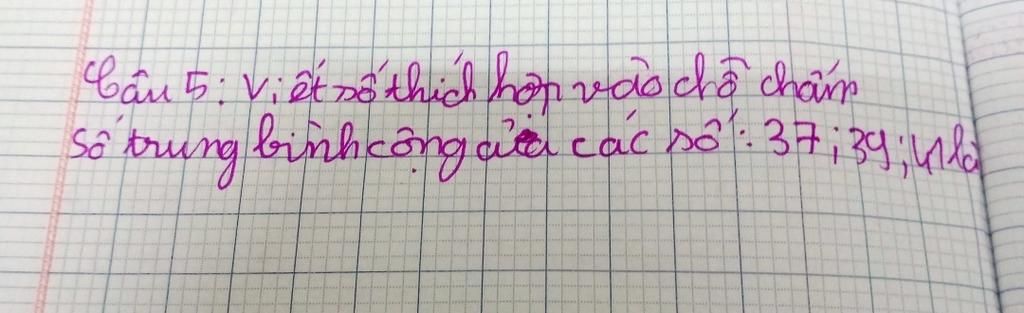 Câu 5: Viết số thích hợp vào chỗ chấm
Số trung bình cộng của các số: 37; 39; 41 là